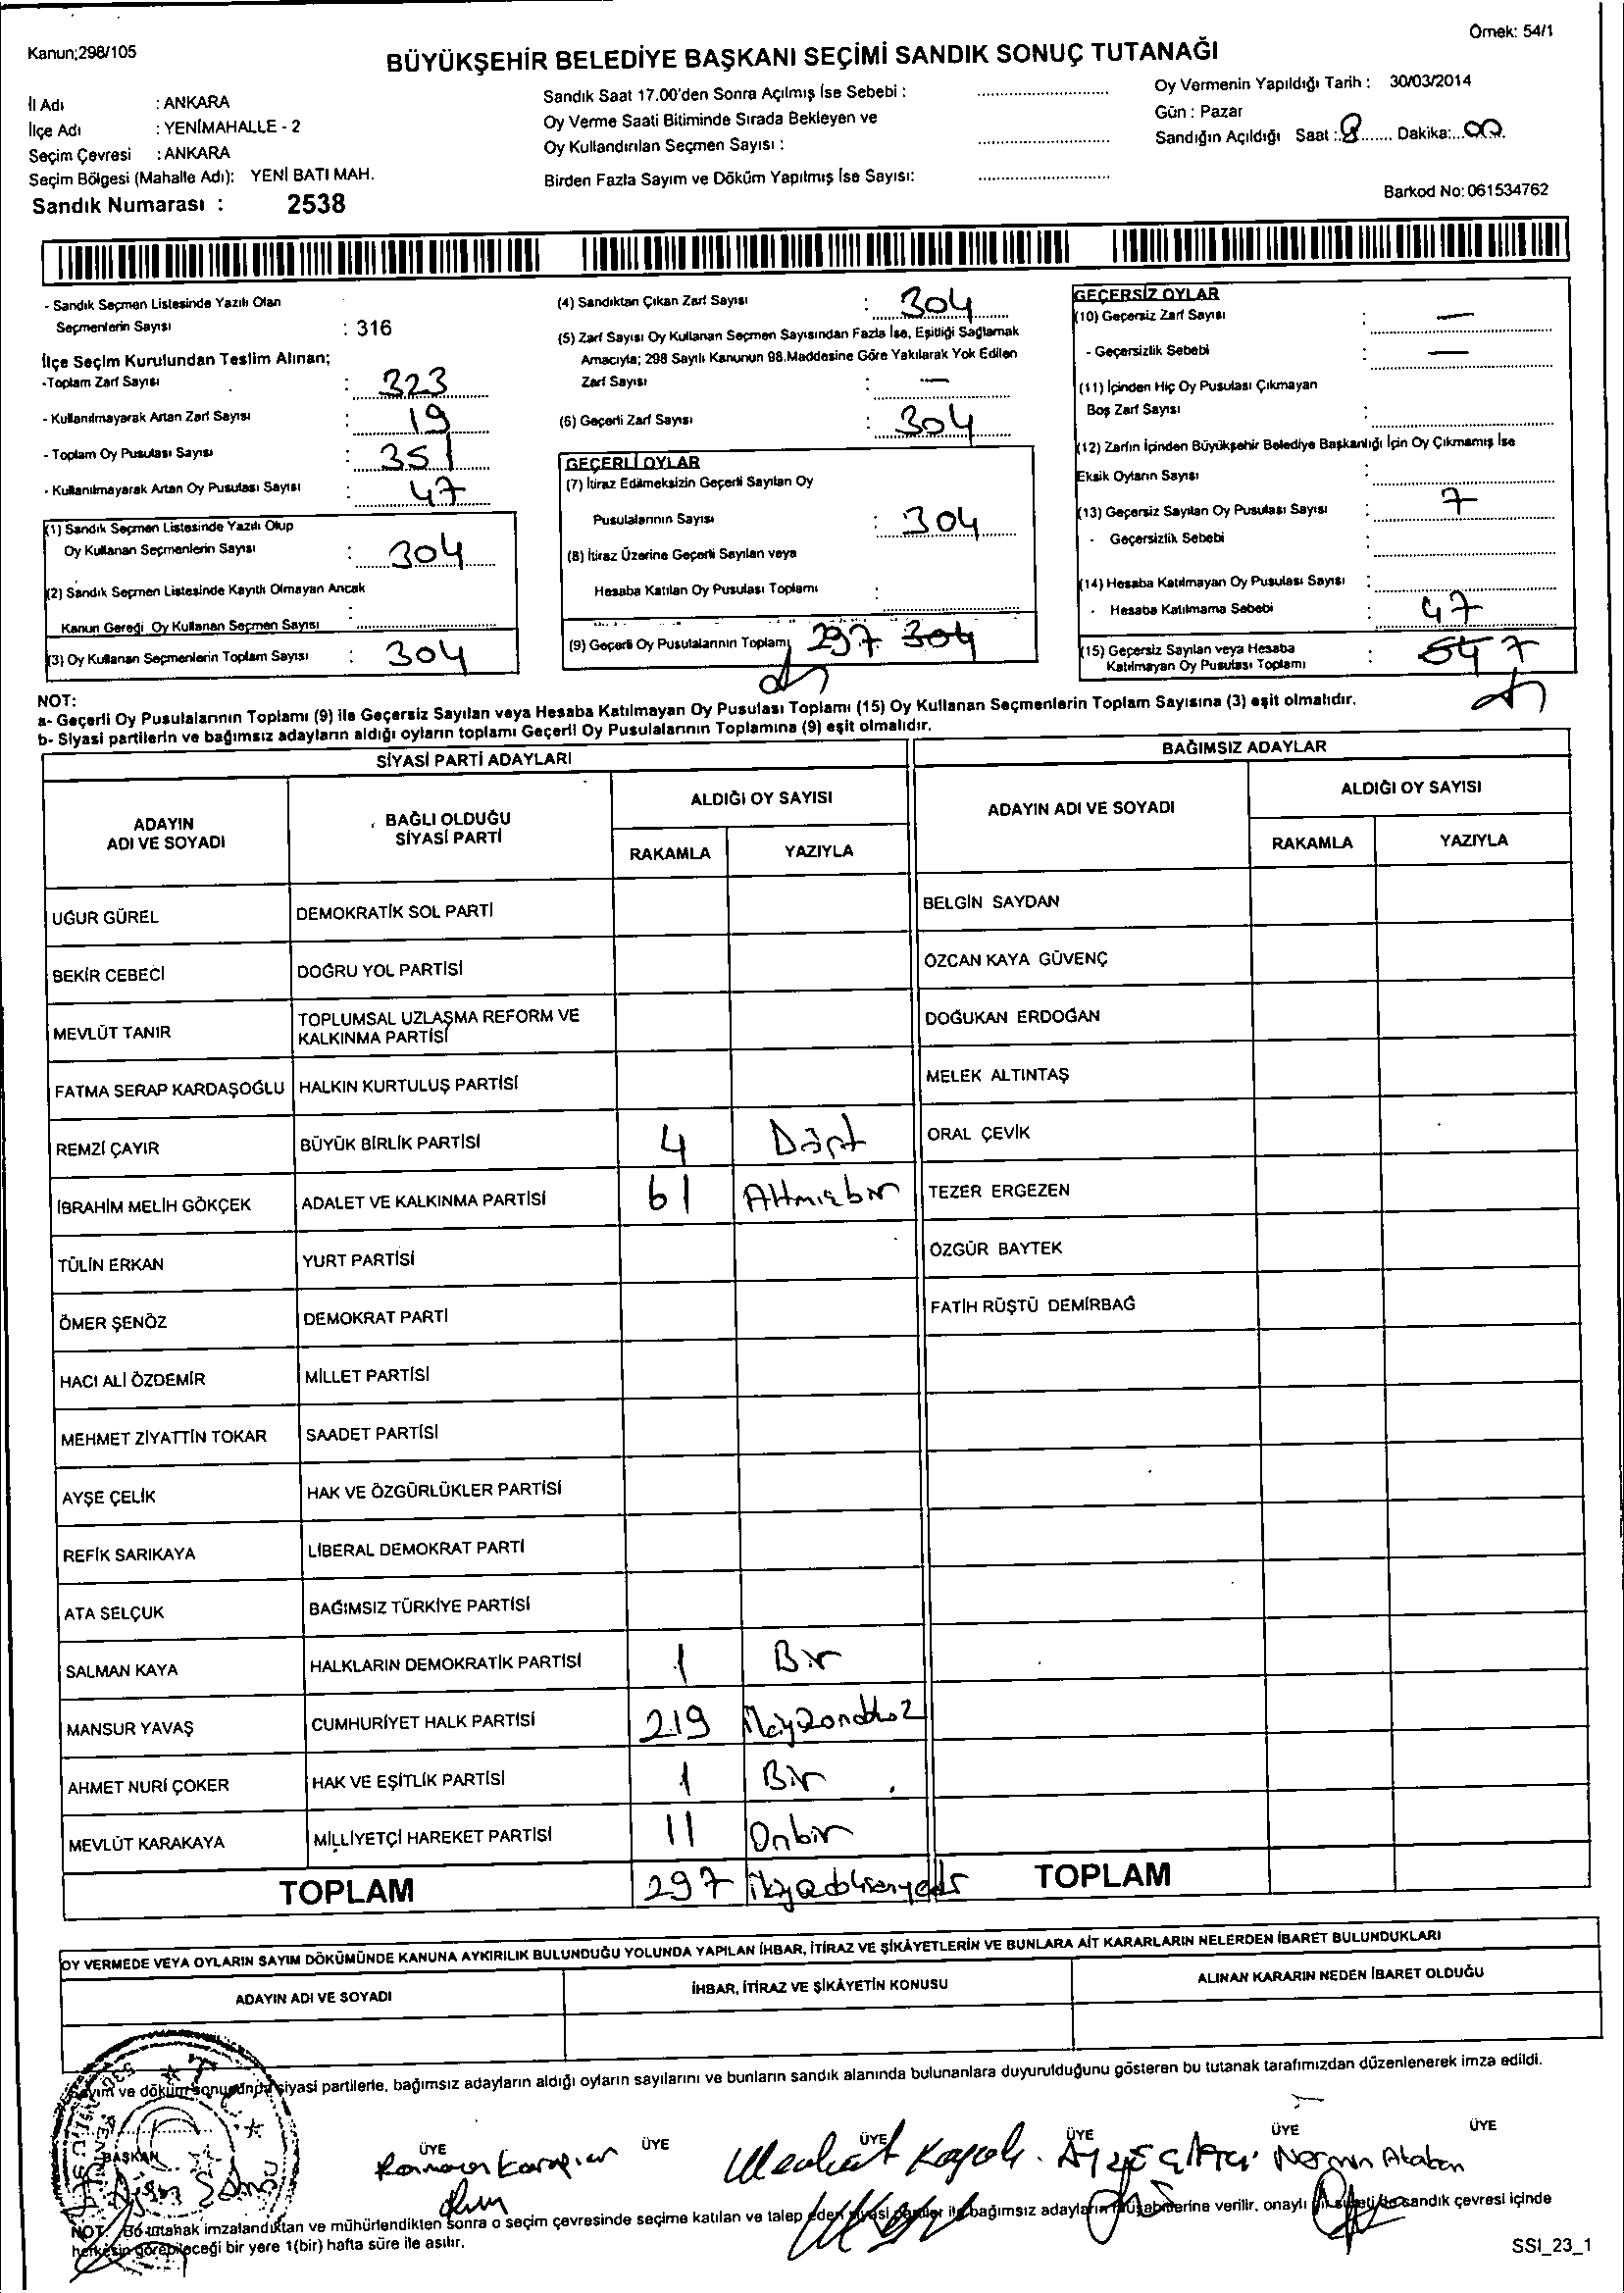 Kanun;298/105
Örnek: 54/1
BÜYÜKŞEHİR BELEDİYE BAŞKANI SEÇİMİ SANDIK SONUÇ TUTANAĞI
İl Adı : ANKARA
İlçe Adı : YENİMAHALLE - 2
Seçim Çevresi : ANKARA
Seçim Bölgesi (Mahalle Adı): YENİ BATI MAH.
Sandık Numarası : 2538
Sandık Saat 17.00'den Sonra Açılmış İse Sebebi :
Oy Verme Saati Bitiminde Sırada Bekleyen ve
Oy Kullandırılan Seçmen Sayısı :
Birden Fazla Sayım ve Döküm Yapılmış İse Sayısı:
Oy Vermenin Yapıldığı Tarih : 30/03/2014
Gün : Pazar
Sandığın Açıldığı Saat : 8 Dakika: 00
Barkod No: 061534762
- Sandık Seçmen Listesinde Yazılı Olan
Seçmenlerin Sayısı : 316
İlçe Seçim Kurulundan Teslim Alınan;
-Toplam Zarf Sayısı : 323
- Kullanılmayarak Artan Zarf Sayısı : 19
- Toplam Oy Pusulası Sayısı : 351
- Kullanılmayarak Artan Oy Pusulası Sayısı : 47
(1) Sandık Seçmen Listesinde Yazılı Olup
Oy Kullanan Seçmenlerin Sayısı : 304
(2) Sandık Seçmen Listesinde Kayıtlı Olmayan Ancak
Kanun Gereği Oy Kullanan Seçmen Sayısı :
(3) Oy Kullanan Seçmenlerin Toplam Sayısı : 304
(4) Sandıktan Çıkan Zarf Sayısı : 304
(5) Zarf Sayısı Oy Kullanan Seçmen Sayısından Fazla İse, Eşitliği Sağlamak
Amacıyla; 298 Sayılı Kanunun 98.Maddesine Göre Yakılarak Yok Edilen
Zarf Sayısı : —
(6) Geçerli Zarf Sayısı : 304
GEÇERLİ OYLAR
(7) İtiraz Edilmeksizin Geçerli Sayılan Oy
Pusulalarının Sayısı : 304
(8) İtiraz Üzerine Geçerli Sayılan veya
Hesaba Katılan Oy Pusulası Toplamı :
(9) Geçerli Oy Pusulalarının Toplamı 297 304
GEÇERSİZ OYLAR
(10) Geçersiz Zarf Sayısı : —
- Geçersizlik Sebebi : —
(11) İçinden Hiç Oy Pusulası Çıkmayan
Boş Zarf Sayısı :
(12) Zarfın İçinden Büyükşehir Belediye Başkanlığı İçin Oy Çıkmamış İse
Eksik Oyların Sayısı :
(13) Geçersiz Sayılan Oy Pusulası Sayısı : 7
- Geçersizlik Sebebi :
(14) Hesaba Katılmayan Oy Pusulası Sayısı :
- Hesaba Katılmama Sebebi : 47
(15) Geçersiz Sayılan veya Hesaba
Katılmayan Oy Pusulası Toplamı : 54 7
NOT:
a- Geçerli Oy Pusulalarının Toplamı (9) ile Geçersiz Sayılan veya Hesaba Katılmayan Oy Pusulası Toplamı (15) Oy Kullanan Seçmenlerin Toplam Sayısına (3) eşit olmalıdır.
b- Siyasi partilerin ve bağımsız adayların aldığı oyların toplamı Geçerli Oy Pusulalarının Toplamına (9) eşit olmalıdır.
SİYASİ PARTİ ADAYLARI
BAĞIMSIZ ADAYLAR
ADAYIN ADI VE SOYADI
BAĞLI OLDUĞU SİYASİ PARTİ
ALDIĞI OY SAYISI
RAKAMLA YAZIYLA
ADAYIN ADI VE SOYADI
ALDIĞI OY SAYISI
RAKAMLA YAZIYLA
UĞUR GÜREL DEMOKRATİK SOL PARTİ BELGİN SAYDAN
BEKİR CEBECİ DOĞRU YOL PARTİSİ ÖZCAN KAYA GÜVENÇ
MEVLÜT TANIR TOPLUMSAL UZLAŞMA REFORM VE KALKINMA PARTİSİ DOĞUKAN ERDOĞAN
FATMA SERAP KARDAŞOĞLU HALKIN KURTULUŞ PARTİSİ MELEK ALTINTAŞ
REMZİ ÇAYIR BÜYÜK BİRLİK PARTİSİ 4 Dört ORAL ÇEVİK
İBRAHİM MELİH GÖKÇEK ADALET VE KALKINMA PARTİSİ 61 Altmışbir TEZER ERGEZEN
TÜLİN ERKAN YURT PARTİSİ ÖZGÜR BAYTEK
ÖMER ŞENÖZ DEMOKRAT PARTİ FATİH RÜŞTÜ DEMİRBAĞ
HACI ALİ ÖZDEMİR MİLLET PARTİSİ
MEHMET ZİYATTİN TOKAR SAADET PARTİSİ
AYŞE ÇELİK HAK VE ÖZGÜRLÜKLER PARTİSİ
REFİK SARIKAYA LİBERAL DEMOKRAT PARTİ
ATA SELÇUK BAĞIMSIZ TÜRKİYE PARTİSİ
SALMAN KAYA HALKLARIN DEMOKRATİK PARTİSİ 1 Bir
MANSUR YAVAŞ CUMHURİYET HALK PARTİSİ 219
AHMET NURİ ÇOKER HAK VE EŞİTLİK PARTİSİ 1 Bir
MEVLÜT KARAKAYA MİLLİYETÇİ HAREKET PARTİSİ 11 Onbir
TOPLAM 297 TOPLAM
OY VERMEDE VEYA OYLARIN SAYIM DÖKÜMÜNDE KANUNA AYKIRILIK BULUNDUĞU YOLUNDA YAPILAN İHBAR, İTİRAZ VE ŞİKÂYETLERİN VE BUNLARA AİT KARARLARIN NELERDEN İBARET BULUNDUKLARI
ADAYIN ADI VE SOYADI İHBAR, İTİRAZ VE ŞİKÂYETİN KONUSU ALINAN KARARIN NEDEN İBARET OLDUĞU
Sayım ve döküm sonucunda siyasi partilerle, bağımsız adayların aldığı oyların sayılarını ve bunların sandık alanında bulunanlara duyurulduğunu gösteren bu tutanak tarafımızdan düzenlenerek imza edildi.
BAŞKAN ÜYE ÜYE ÜYE ÜYE ÜYE ÜYE
NOT: Bu tutanak imzalandıktan ve mühürlendikten sonra o seçim çevresinde seçime katılan ve talep eden siyasi partiler ile bağımsız adayların müşahitlerine verilir, onaylı bir sureti de sandık çevresi içinde
herkesin görebileceği bir yere 1(bir) hafta süre ile asılır.
SSI_23_1